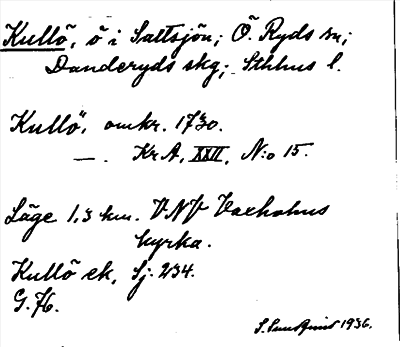 Kullö, ö i Saltsjön; Ö. Ryds sn;
Danderyds skg; Sthlms l.
Kullö", omkr. 1730.
—. KrA, XXVI, N:o 15.
Läge 1,3 km. VNV Vaxholms
kyrka.
Kullö ek, Sj: 234.
G. 76.
S. Sundqvist 1936.